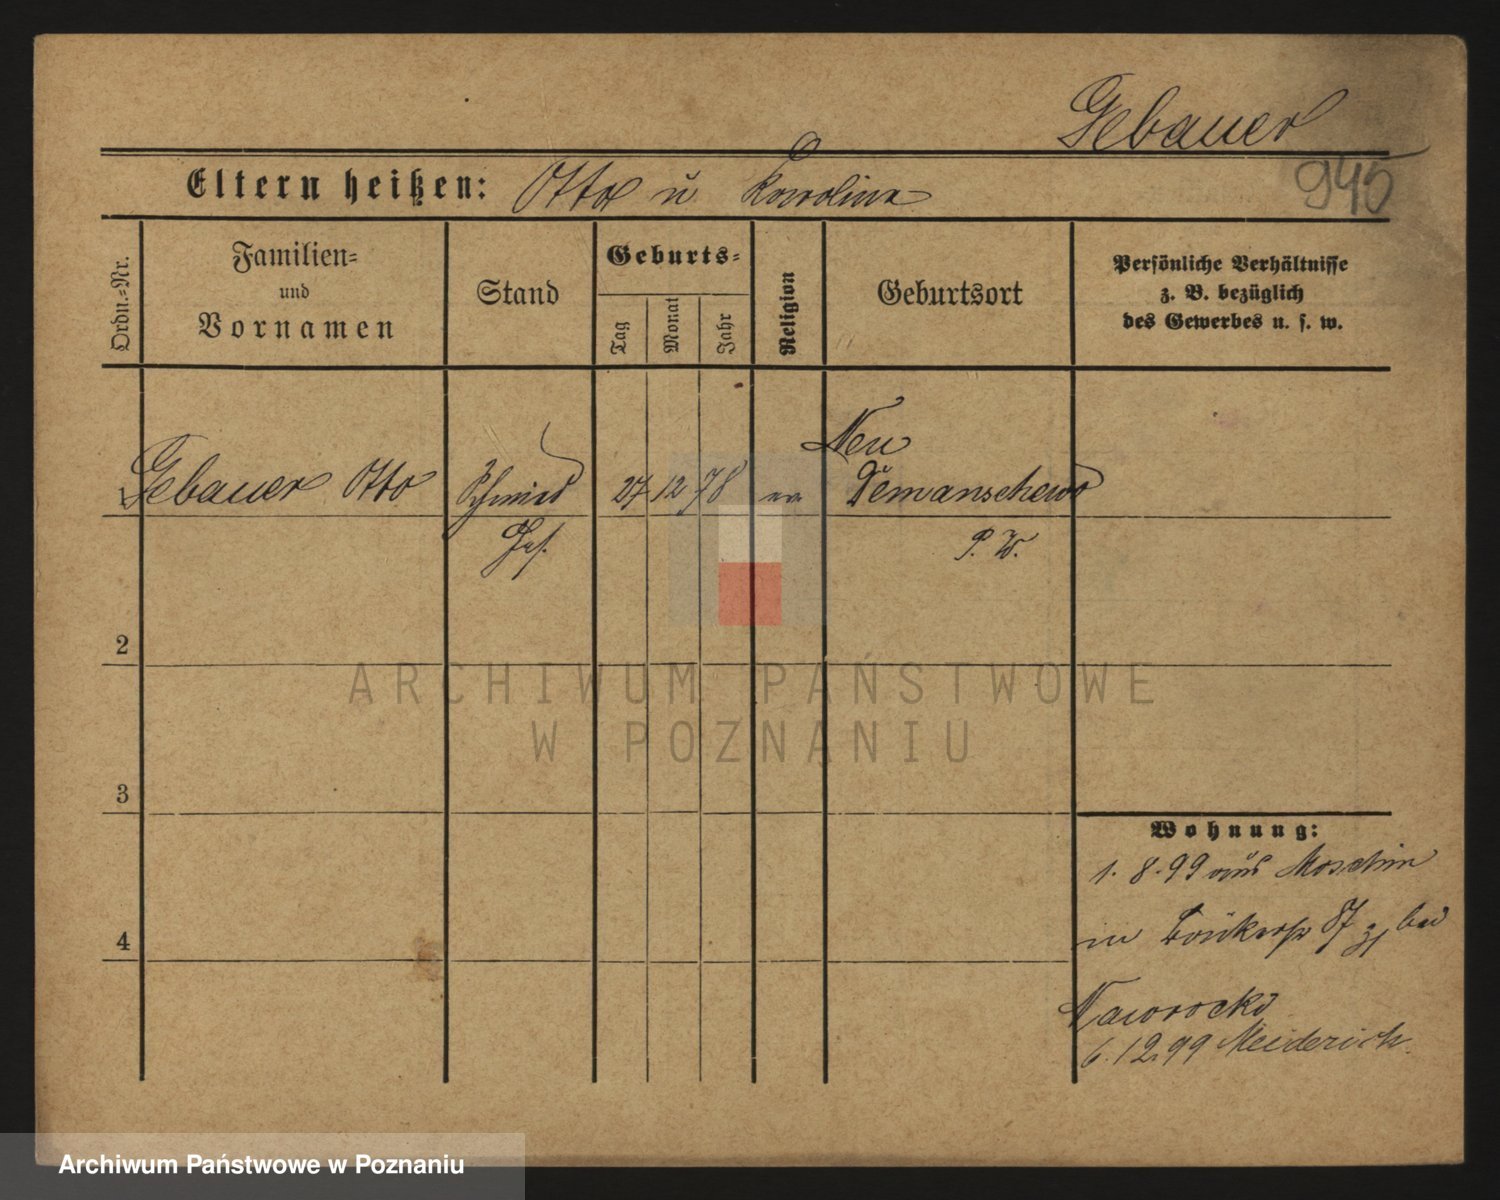 Gebauer
945
Eltern heißen: Otto u Karolina
Ordn.-Nr.
Familien-
und
Vornamen
Stand
Geburts-
Tag
Monat
Jahr
Religion
Geburtsort
Persönliche Verhältnisse
z. B. bezüglich
des Gewerbes u. s. w.
Neu
1 Gebauer Otto Schmied 27 12 78 ev Demanschewo
Ges. P. W.
2
ARCHIWUM PAŃSTWOWE
W POZNANIU
3
4
Wohnung:
1. 8. 99 aus Moschin
in 87 bei
Naworocki
6. 12. 99 Meiderich
Archiwum Państwowe w Poznaniu